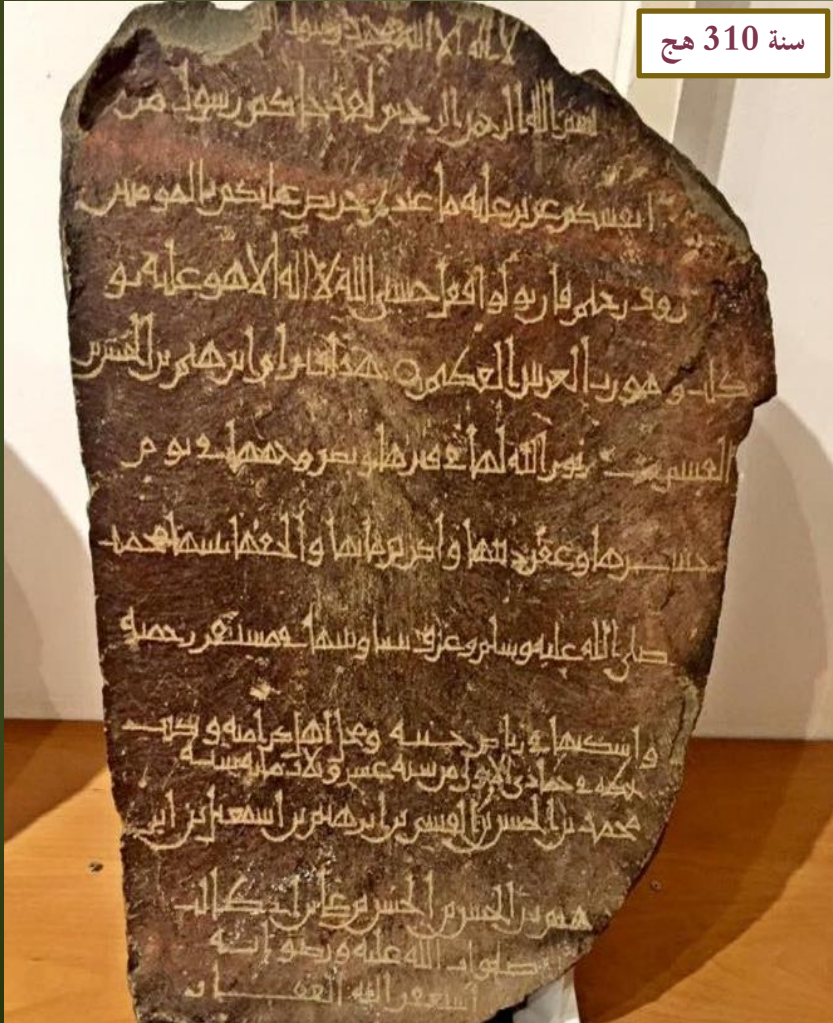 سنة 310 هج
لا اله الا الله محمد رسول الله
بسم الله الرحمن الرحيم لقد جاكم رسول من
انفسكم عزيز عليه ما عنتم حريص عليكم بالمومنين
روف رحيم فان تولوا فقل حسبي الله لا اله الا هو عليه تو
كلت وهو رب العرش العظيم ابرهيم بن
نور الله لها في قبرها وبيض وجهها في يوم
حشرها وغفر ذنبها واكرم مابها والحقها بنبيها محمد
صلى الله عليه وسلم وعرف في مستقر رحمته
واسكنها في رياض جنته ومحل اهل كرامته وكتب
بمكة في جمادى الاول من سنة عشر وثلاث مائة
محمد بن الحسن بن القسم بن ابرهيم بن اسمعيل بن ابر
هيم بن الحسن بن الحسن بن علي بن ابي طالب
صلوات الله عليه ورضوانه
استغفر الله الغفار